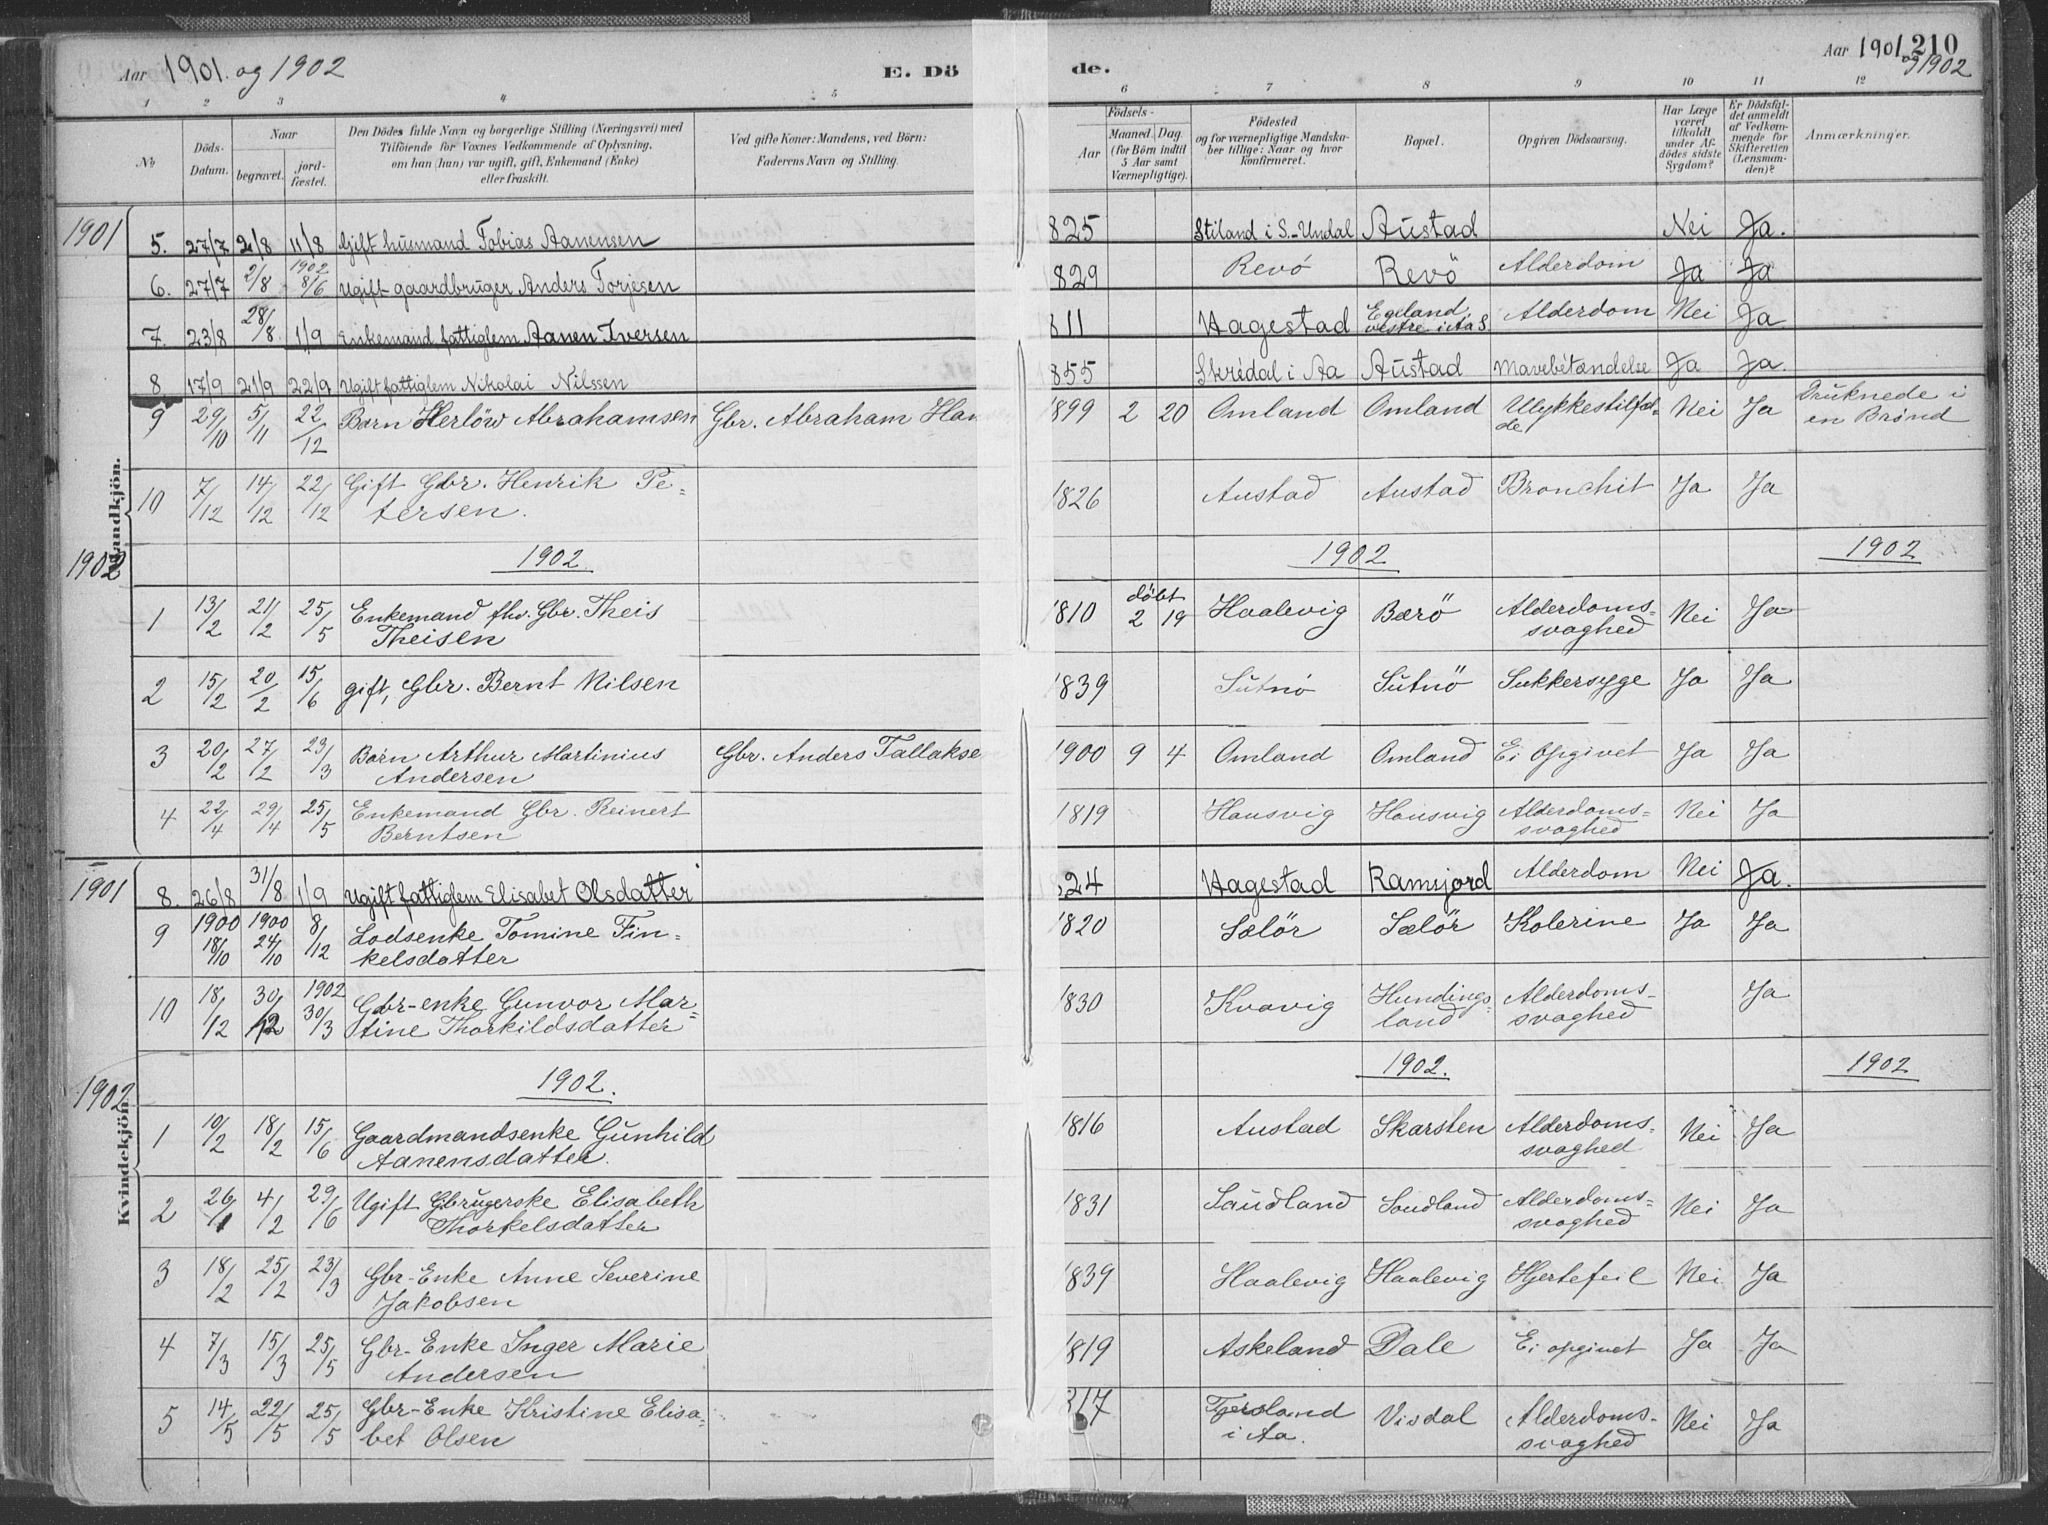 Aar 1901. og 1902
E. Dö de.
Aar 1901. 210
og 1902
1 2 3 4 5 6 7 8 9 10 11 12
No
Döds-Datum.
Naar
begravet.
jord-fæstet.
Den Dödes fulde Navn og borgerlige Stilling (Næringsvei) med
Tilföiende för Voxnes Vedkommende af Oplysning,
om han (hun) var ugift, gift, Enkemand (Enke)
eller fraskilt.
Ved gifte Koner: Mandens, ved Börn:
Faderens Navn og Stilling.
Födsels-
Aar
Maaned. Dag.
(for Börn indtil
5 Aar samt
Værnepligtige).
Födested
og for værnepligtige Mandska-
ber tillige: Naar og hvor
konfirmeret.
Bopæl.
Opgiven Dödsaarsag.
Har Læge
været
tilkaldt
under Af-
dödes sidste
Sygdom?
Er Dödsfal-
det anmeldt
af Vedkom-
mende för
Skifteretten
(Lensman-
den)?
Anmærkninger.
Mandkjön.
1901
5. 27/7 2/8 11/8 Gift husmand Tobias Aanensen 825 Stiland i S.-Undal Austad Nei Ja.
6. 27/7 2/8 1902 8/6 Ugift gaardbruger Anders Torjesen 829 Revö Revö Alderdom Ja Ja
7. 23/8 28/8 1/9 Enkemand, fattiglem Aanen Iversen 811 Hagestad Egeland vestre i Aa S. Alderdom Nei Ja
8 17/9 21/9 22/9 Ugift fattiglem Nikolai Nilssen 855 Skrédal i Aa Austad Mavebétændelse Ja Ja.
9 29/10 5/11 22/12 Barn Herlöw Abrahamsen Gbr. Abraham Han 1899 2 20 Omland Omland Ulykkestilfæl-
de Nei Ja Druknede i
en Brönd
10 7/12 14/12 22/12 Gift Gbr. Henrik Pe-
tersen. 1826 Austad Austad Bronchit Ja Ja
1902
1902. 1902 1902
1 13/2 21/2 25/5 Enkemand fhv. Gbr. Theis
Theisen 1810 döbt
2 19 Haalevig Bærö Alderdoms-
svaghed Nei Ja
2 15/2 20/2 15/6 gift, Gbr. Bernt Nilsen 1839 Sutnö Sutnö Sukkersyge Ja Ja
3 20/2 27/2 23/3 Barn Arthur Martinius
Andersen Gbr. Anders Tallakse 1900 9 4 Omland Omland Ei opgivet Ja Ja
4 22/4 29/4 25/5 Enkemand Gbr. Reinert
Berntsen 1819 Hausvig Hausvig Alderdoms-
svaghed Nei Ja
Kvindekjön.
1901
8. 26/8 31/8 1/9 Ugift fattiglem Elisabet Olsdatter 24 Hagestad Ramsjord Alderdom Nei Ja.
9 1900 18/10 1900 24/10 8/12 Lodsenke Tomine Fin-
kelsdatter 1820 Sælör Sælör Kolerine Ja Ja
10 18/12 30/12 1902 30/3 Gbr-enke Gunvor Mar-
tine Thorkildsdatter 1830 Kvavig Hundings-
land Alderdoms-
svaghed Ja
1902
1902. 1902. 1902
1 10/2 18/2 15/6 Gaardmandsenke Gunhild
Aanensdatter. 1816 Austad Skarsten Alderdoms-
svaghed Nei Ja
2 26/1 4/2 29/6 Ugift Gbrugerske Elisabeth
Thorkelsdatter 1831 Saudland Saudland Alderdoms-
svaghed Nei Ja
3 18/2 25/2 23/3 Gbr-Enke Anne Severine
Jakobsen 1839 Haalevig Haalevig Hjertefeil Nei Ja
4 7/3 15/3 25/5 Gbr-Enke Inger Marie
Andersen 1819 Askeland Dale Ei opgivet Ja Ja
5 14/5 22/5 25/5 Gbr-Enke Kristine Elisa-
bet Olsen 817 Tjersland
i Aa. Visdal Alderdoms-
svaghed Nei Ja